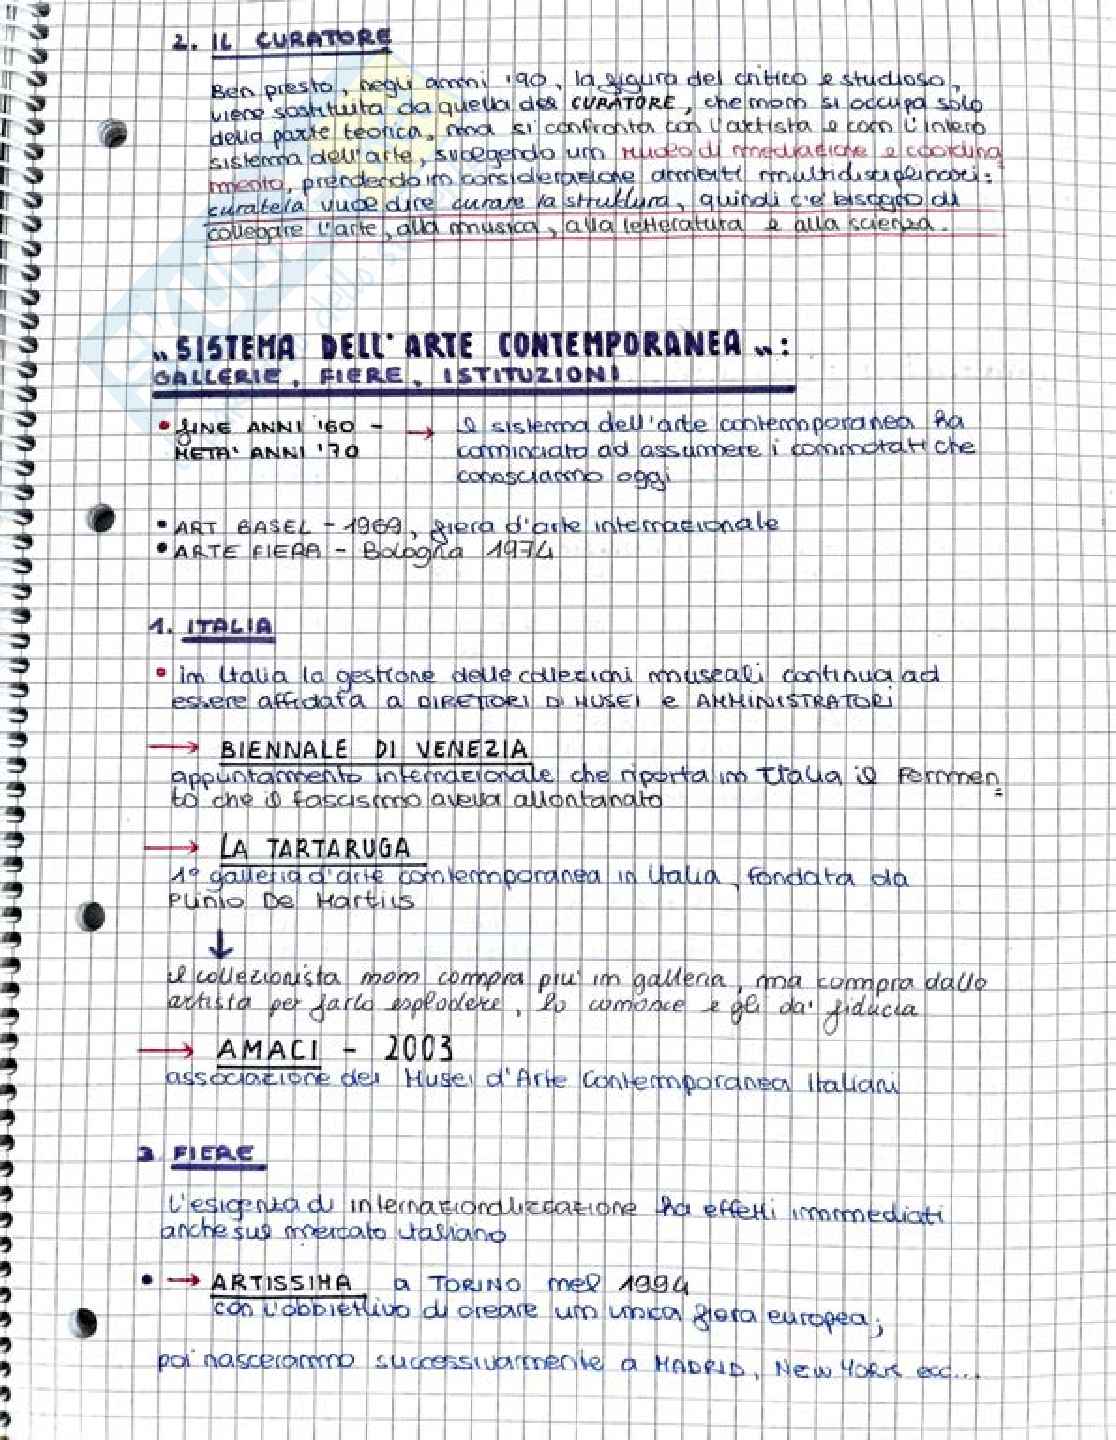 2. IL CURATORE
Ben presto, negli anni '90, la figura del critico e studioso,
viene sostituita da quella del CURATORE, che non si occupa solo
della parte teorica, ma si confronta con l'artista e con l'intero
sistema dell'arte, svolgendo un ruolo di mediazione e coordina
mento, prendendo in considerazione ambiti multidisciplinari:
curatela vuole dire curare la struttura, quindi c'è bisogno di
collegare l'arte, alla musica, alla letteratura e alla scienza.
"SISTEMA DELL'ARTE CONTEMPORANEA":
GALLERIE, FIERE, ISTITUZIONI
• FINE ANNI '60 - → il sistema dell'arte contemporanea ha
METÀ ANNI '70 cominciato ad assumere i connotati che
conosciamo oggi
• ART BASEL - 1969, fiera d'arte internazionale
• ARTE FIERA - Bologna 1974
1. ITALIA
• in Italia la gestione delle collezioni museali continua ad
essere affidata a DIRETTORI DI MUSEI e AMMINISTRATORI
→ BIENNALE DI VENEZIA
appuntamento internazionale che riporta in Italia il fermmen
to che il fascismo aveva allontanato
→ LA TARTARUGA
1° galleria d'arte contemporanea in Italia, fondata da
Plinio De Martiis
↓
il collezionista non compra più in galleria, ma compra dallo
artista per farlo esplodere, lo conosce e gli dà fiducia
→ AMACI - 2003
associazione dei Musei d'Arte Contemporanea Italiani
2 FIERE
L'esigenza di internazionalizzazione ha effetti immediati
anche sul mercato italiano
• → ARTISSIMA a TORINO nel 1994
con l'obbiettivo di creare un unica fiera europea;
poi nasceranno successivamente a MADRID, NEW YORK ecc...